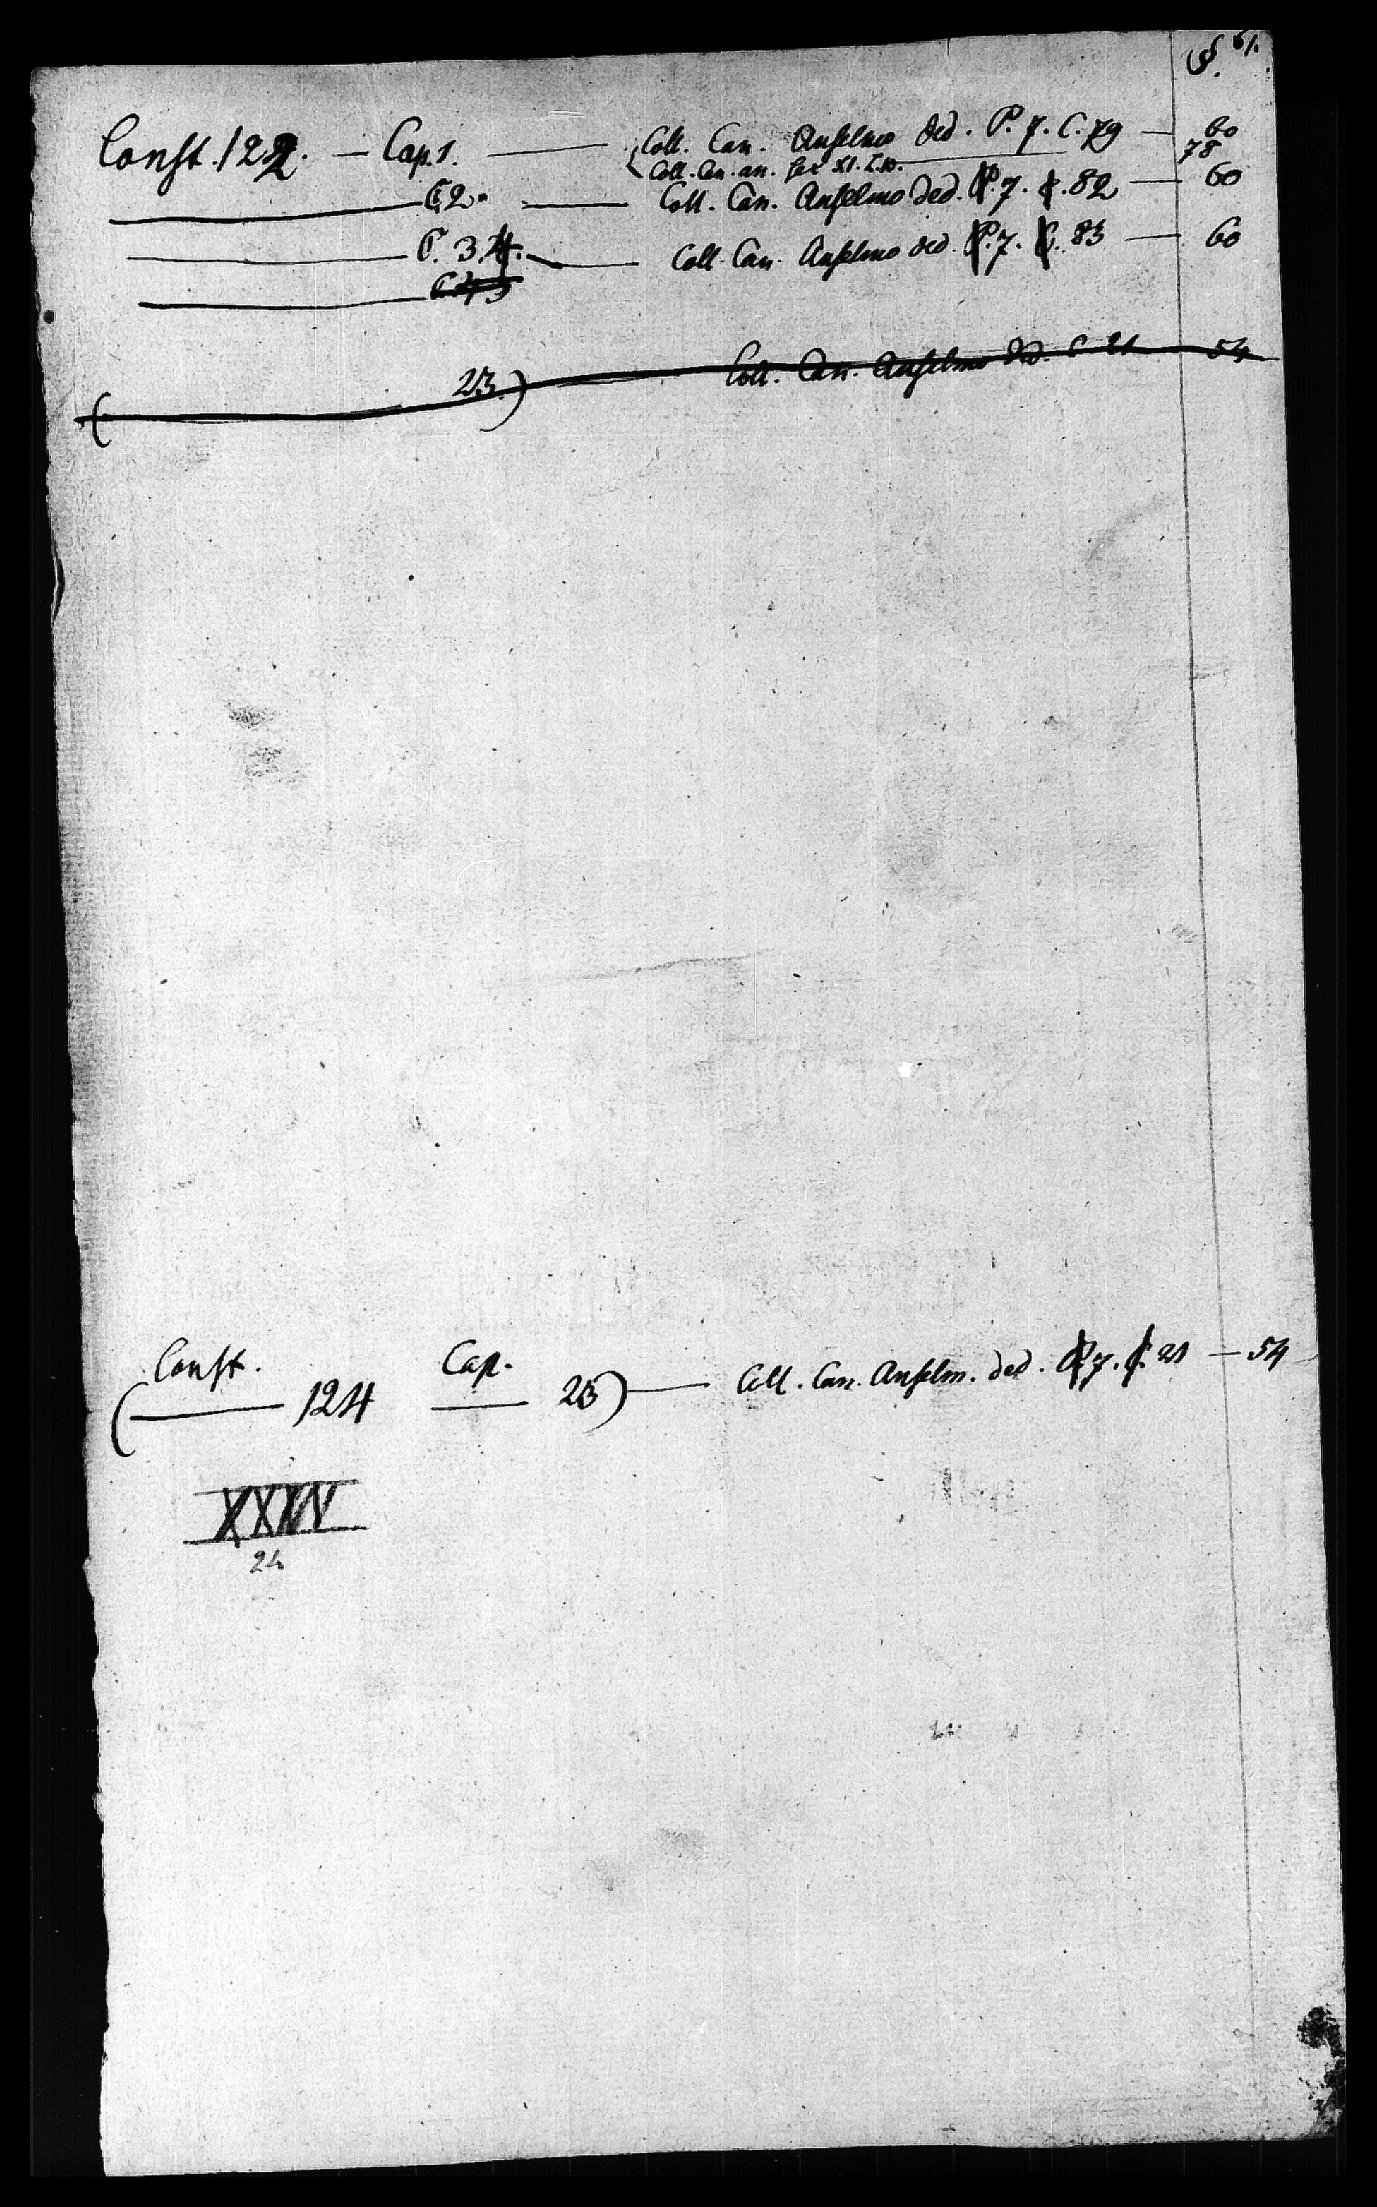 §. 61.
Const. 122. — Cap. 1. — Coll. Can. Anselmo ded. P. 7. C. 79 — 60
Coll. Can. an. 78
C. 2. — Coll. Can. Anselmo ded. P. 7. C. 82 — 60
C. 3. 4. — Coll. Can. Anselmo ded. P. 7. C. 83 — 60
( 23.) Coll. Can. Anselmo ded. C. 21 54
Const. Cap.
( 124 23) — Coll. Can. Anselm. ded. P. 7. C. 21 — 54
XXIV
24